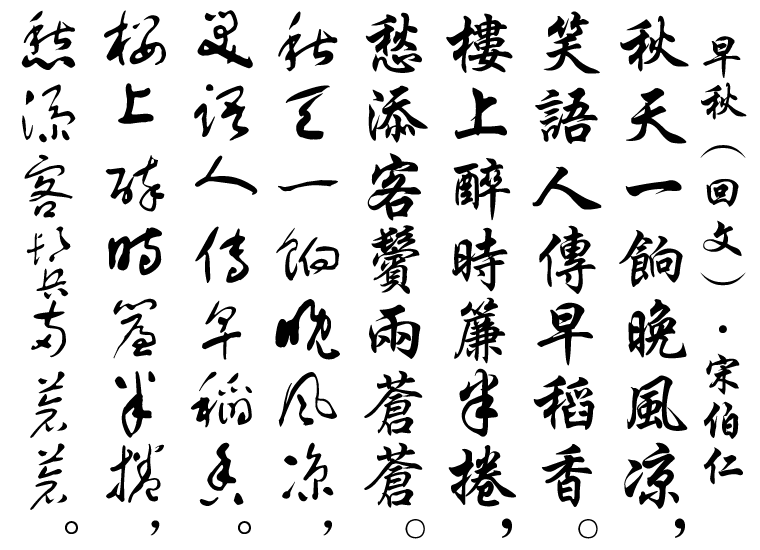 早秋（回文）·宋伯仁
秋天一餉晚風凉，
笑語人傳早稻香。
樓上醉時簾半捲，
愁添客鬢雨蒼蒼。
秋天一餉晚風凉，
笑語人傳早稻香。
樓上醉時簾半捲，
愁添客鬢雨蒼蒼。